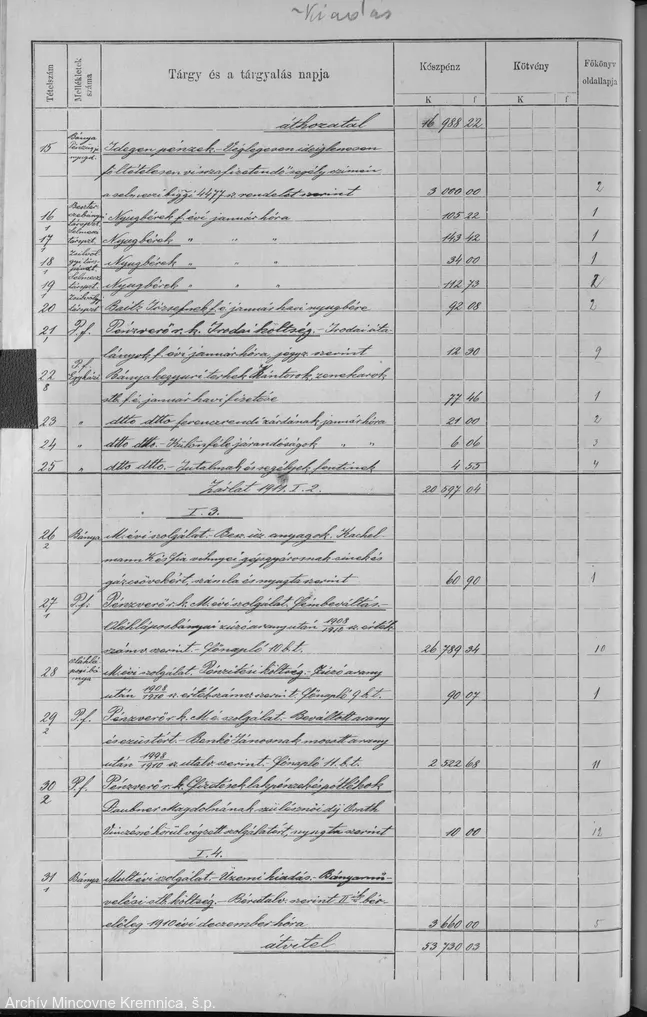 Kiadás
Tételszám Mellékletek száma Tárgy és a tárgyalás napja Készpénz Kötvény Főkönyv oldallapja
K f K f
áthozatal 16 988 22
15 Bánya Idegen pénzek. Véglegesen ideiglenesen
feltételesen visszafizetendő segély czimén
a selmeczi 4477 sz. rendelet szerint 3 000 00 2
16 Nyugbérek f. évi január hóra 105 22 1
17 Nyugbérek " " " 143 42 1
18 Nyugbérek " " " 34 00 1
19 Nyugbérek " " " 112 73 2
20 Baitz Józsefnek f. é. január havi nyugbére 92 08 2
21 P.f. Pénzverő r. k. Irodai költség. Irodai áta-
lányok f. évi január hóra, jegyz. szerint 12 30 9
22 8 P.f. Egyházi Bányakegyuri terhek. Kántorok, zenekarok
stb. f. é. január havi fizetése 77 46 1
23 " dtto dtto ferenczrendi zárdának január hóra 21 00 2
24 " dtto dtto. Különféle járandóságok " " 6 06 3
25 " dtto dtto. Jutalmak és segélyek fentinek 4 55 4
Zárlat 1911. I. 2. 20 597 04
I. 3.
26 2 Bánya M. évi szolgálat. Besz. üz. anyagok. Kachel-
mann K. és fia vihnyei gépgyárosnak sinek és
gázcsövekért, számla és nyugta szerint 60 90 1
27 1 P.f. Pénzverő r. k. M. évi szolgálat. Fémbeváltás.
Oláhláposbányai zúzó arany után 1908/1910 sz. érték
számv. szerint. Főnapló 10 b. t. 26 789 34 10
28 M. évi szolgálat. Pénzítési költség. Zúzó arany
után 1908/1910 sz. értékszámv. szerint. Főnapló 9 k. t. 90 07 1
29 2 P.f. Pénzverő r. k. M. é. szolgálat. Beváltott arany
és ezüstért. Benkó Jánosnak mosott arany
után 1998/1910 sz. utalv. szerint. Főnapló 11 b. t. 2 522 68 11
30 2 P.f. Pénzverő r. k. Fizetések lakpénzek és pótlékok
Daubner Magdolnának, szülésznői díj
Vinczéné körül végzett szolgálatért, nyugta szerint 10 00 12
I. 4.
31 1 Bánya Multévi szolgálat. Üzemi kiadás. Bányamű-
velési stb. költség. Bérutalv. szerint II. bér-
előleg 1910 évi deczember hóra 3 660 00 5
átvitel 53 730 03
Archív Mincovne Kremnica, š.p.